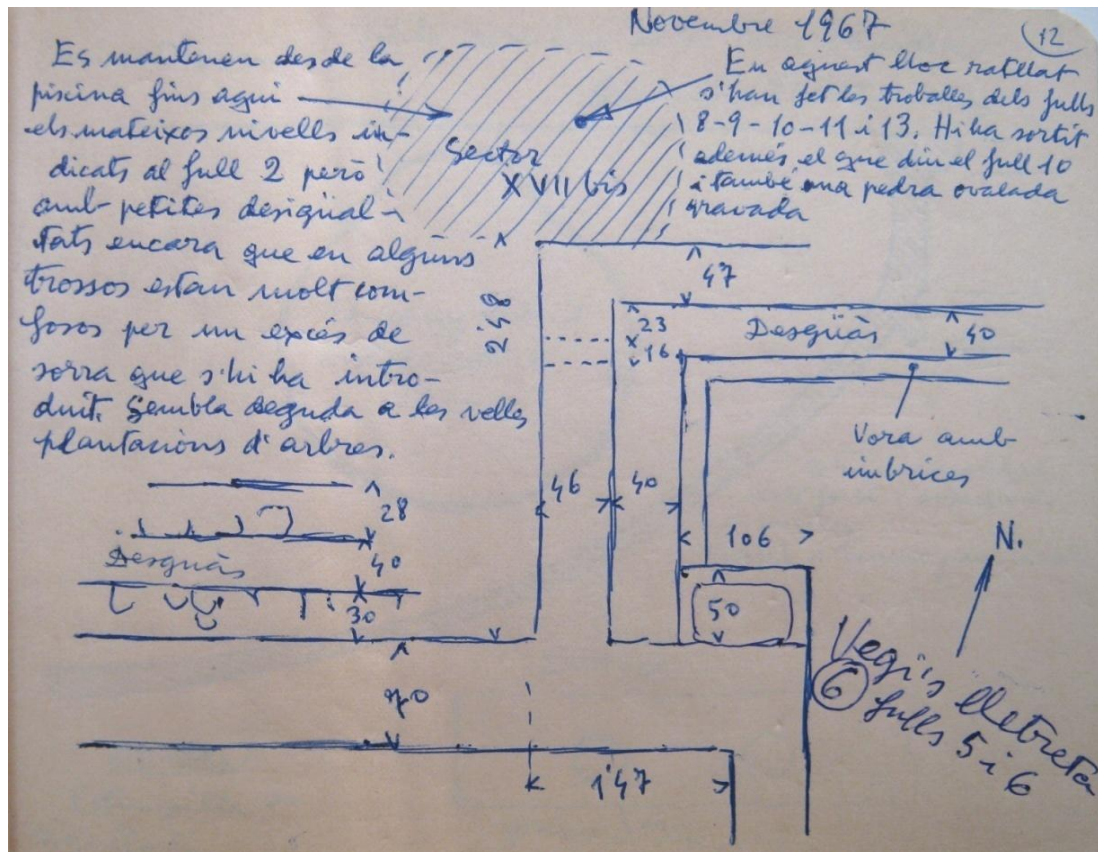 Novembre 1967
12
Es mantenen desde la
piscina fins aqui
els mateixos nivells in-
dicats al full 2 però
amb petites desigual-
tats encara que en alguns
trossos estan molt com-
fosos per un excés de
sorra que s'hi ha intro-
duit. Sembla deguda a les velles
plantacions d'arbres.
Sector
XVII bis
En aquest lloc ratllat
s'han fet les troballes dels fulls
8-9-10-11 i 13. Hi ha sortit
ademés el que diu el full 10
i també una pedra ovalada
gravada
47
2'48
23
16
Desguàs
40
Vora amb
imbrices
46
40
106
50
28
Desguàs
40
30
70
1'47
N.
Vegi's lletreta
6
fulls 5 i 6